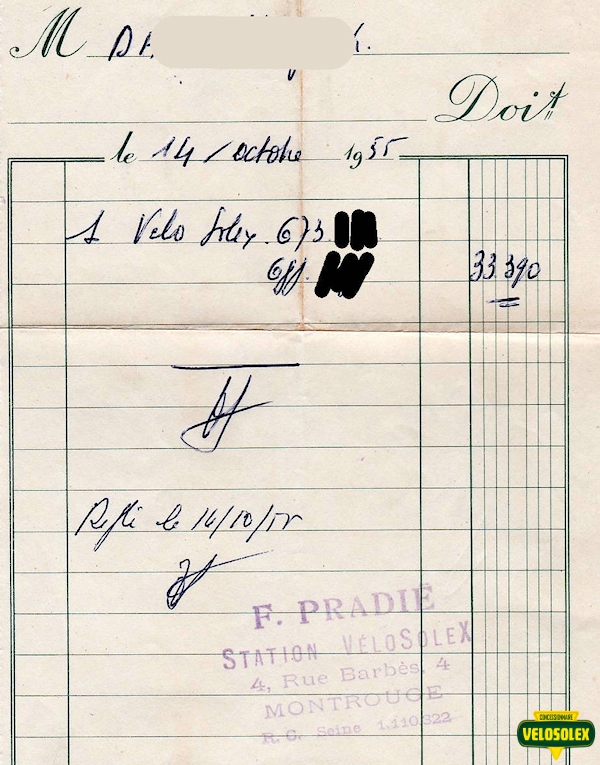 M
Doit
le 14 / octobre 1955
1 Velo Solex. 673
33.390
Reglé le 14/10/55
F. PRADIE
STATION VÉLOSOLEX
4, Rue Barbès, 4
MONTROUGE
R. C. Seine 1.110.322
CONCESSIONNAIRE
VELOSOLEX